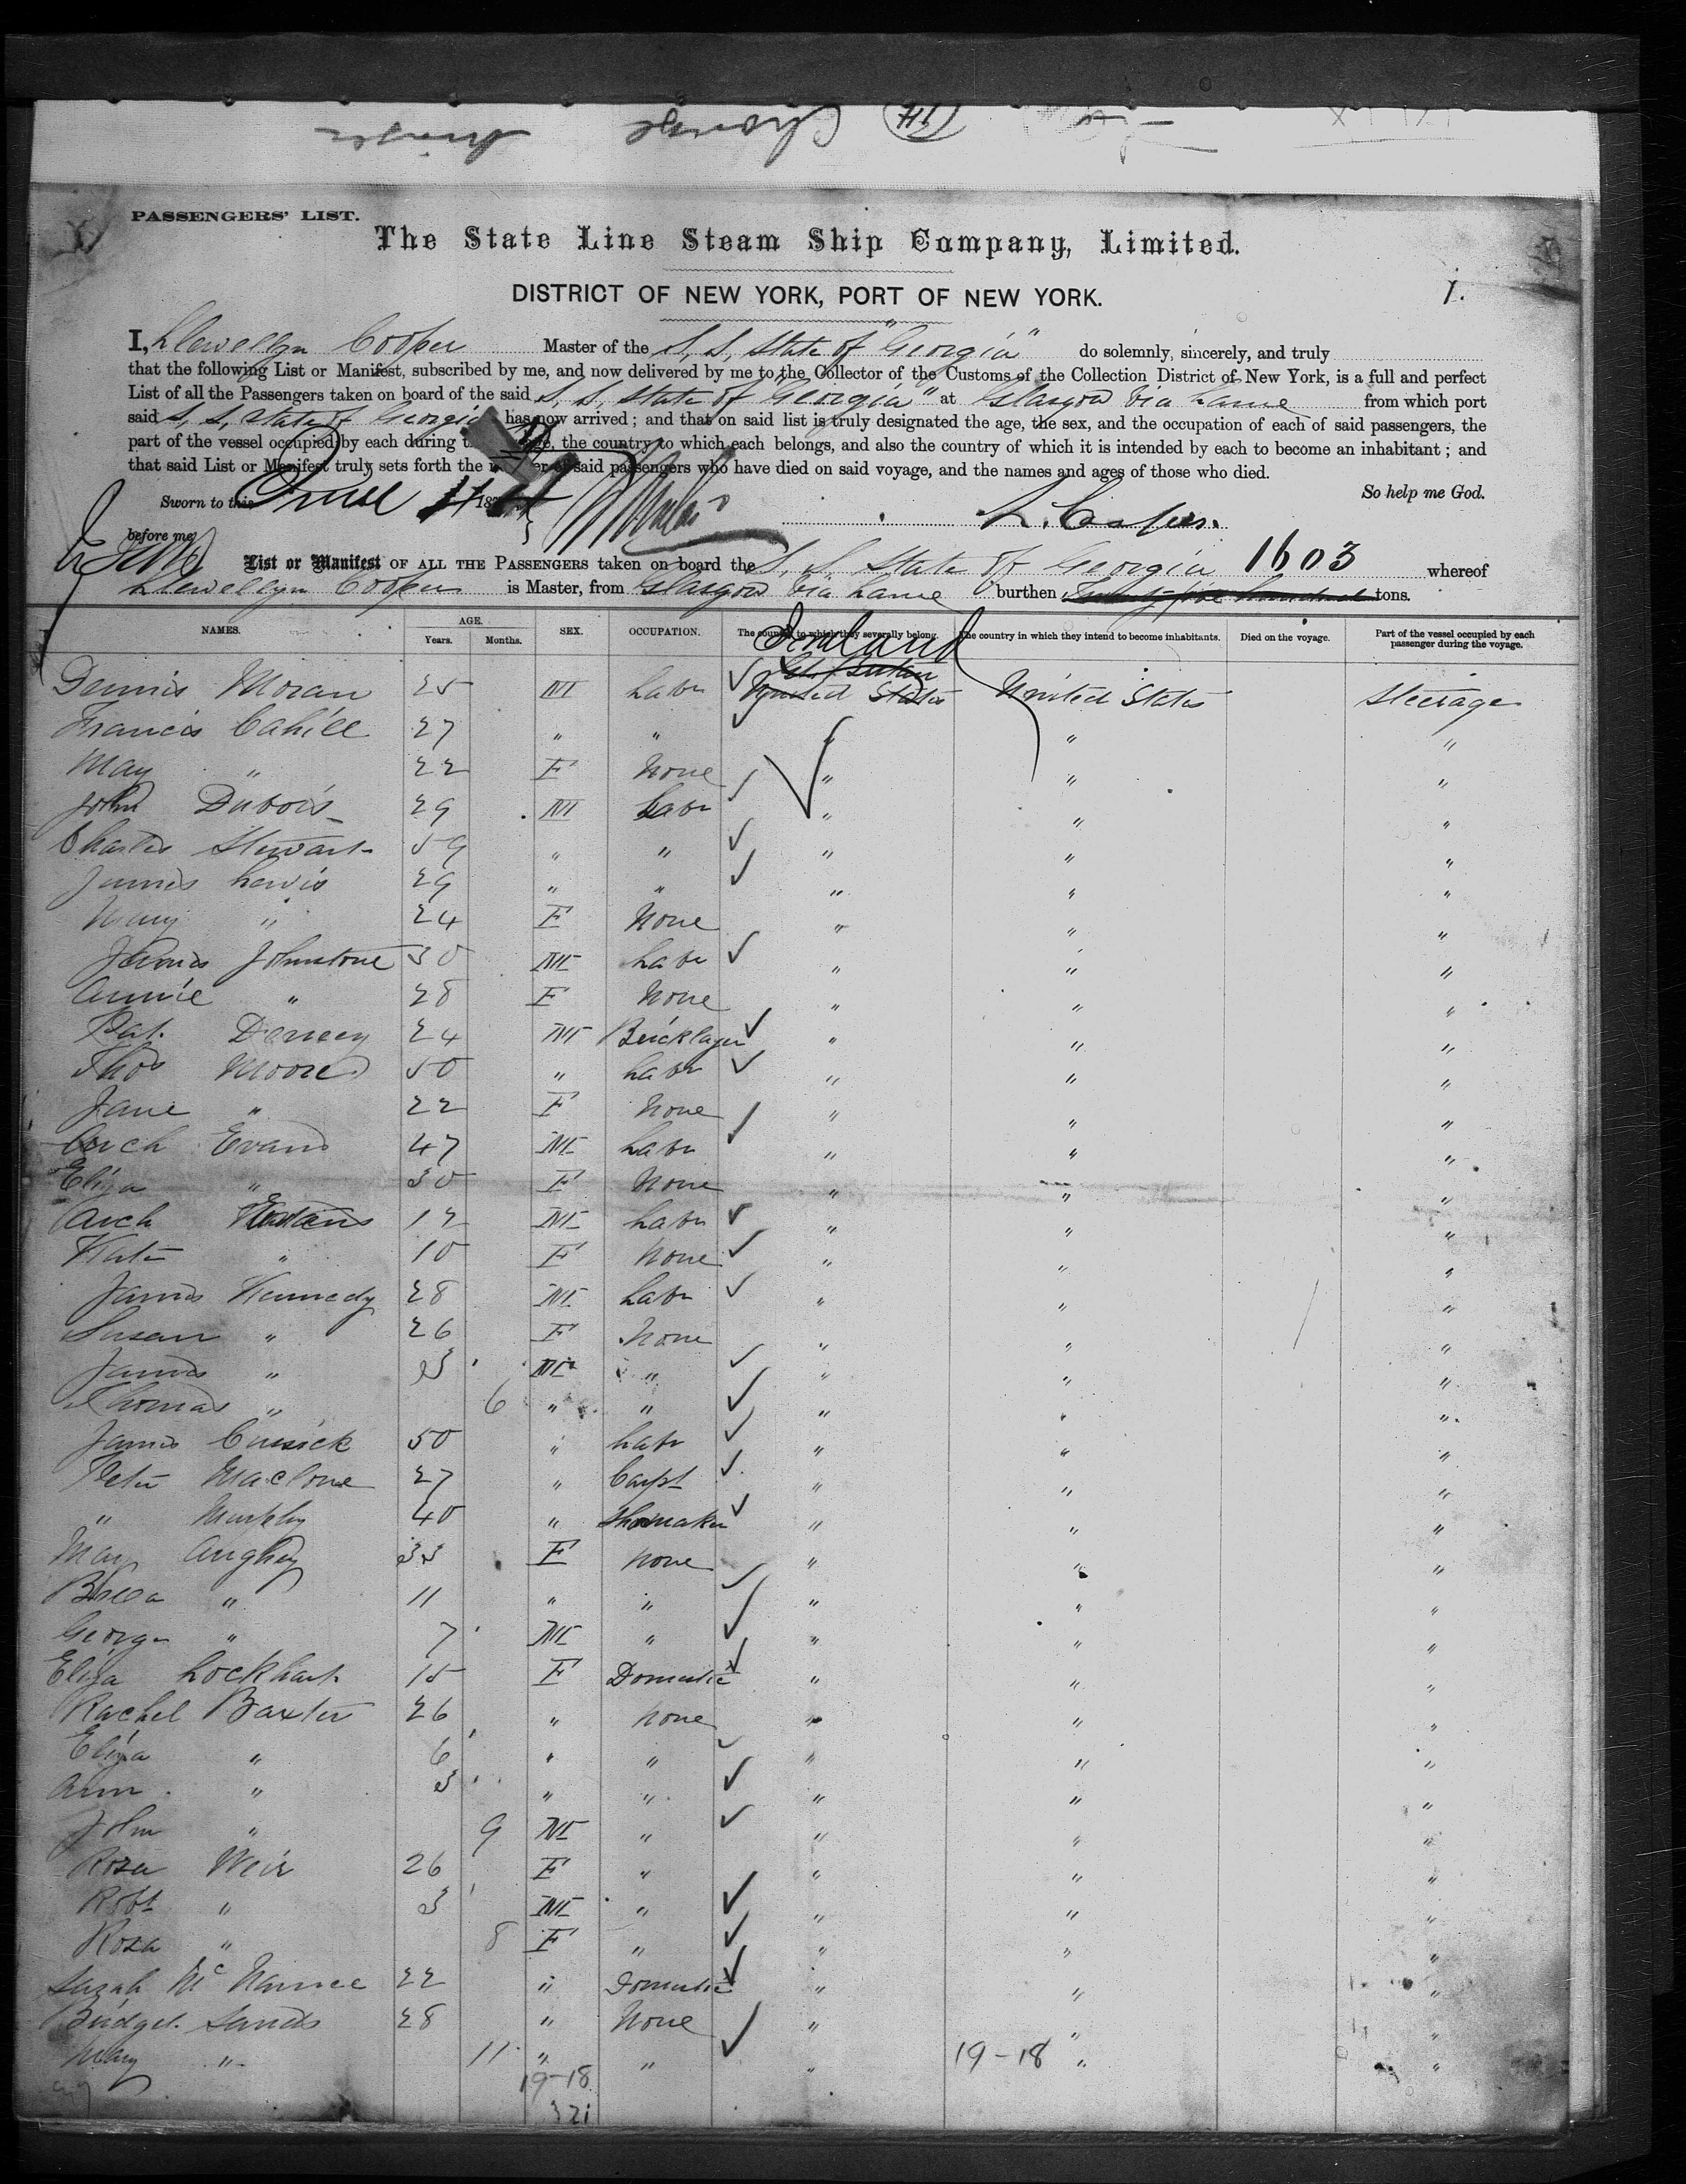 PASSENGERS' LIST.
The State Line Steam Ship Company, Limited.
DISTRICT OF NEW YORK, PORT OF NEW YORK.
1.
I, Llewellyn Cooper Master of the S. S. State of "Georgia" do solemnly, sincerely, and truly
that the following List or Manifest, subscribed by me, and now delivered by me to the Collector of the Customs of the Collection District of New York, is a full and perfect
List of all the Passengers taken on board of the said S. S. State of "Georgia" at Glasgow via Larne from which port
said S. S. State of Georgia has now arrived; and that on said list is truly designated the age, the sex, and the occupation of each of said passengers, the
part of the vessel occupied by each during the country to which each belongs, and also the country of which it is intended by each to become an inhabitant; and
that said List or Manifest truly sets forth the of said passengers who have died on said voyage, and the names and ages of those who died.
Sworn to this 187
So help me God.
before me
L. Cooper.
List or Manifest OF ALL THE PASSENGERS taken on board the S. S. State of Georgia 1603 whereof
Llewellyn Cooper is Master, from Glasgow via Larne burthen Twenty five hundred tons.
NAMES. AGE. Years. Months. SEX. OCCUPATION. The country to which they severally belong. The country in which they intend to become inhabitants. Died on the voyage. Part of the vessel occupied by each passenger during the voyage.
Ireland
Dennis Moran 25 M Labr United States United States Steerage
Francis Cahill 27 " " " " "
May " 22 F None " " "
John Dubois 29 M Labr " " "
Charles Stewart 59 " " " " "
James Lewis 29 " " " " "
Mary " 24 F None " " "
James Johnstone 30 M Labr " " "
Annie " 28 F None " " "
Pat. 24 M Bricklayer " " "
Thos Moore 50 " Labr " " "
Jane " 22 F None " " "
Arch Evans 47 M Labr " " "
Eliza " 30 F None " " "
Arch 12 M Labr " " "
Kate " 10 F None " " "
James Kennedy 28 M Labr " " "
Susan " 26 F None " " "
James " 3 M " " " "
Thomas " 6 " " " " "
James Cusick 50 " Labr " " "
Peter Maclone 27 " Carpt " " "
" Murphy 40 " Shomaker " " "
May Anghey 33 F None " " "
" 11 " " " " "
George " 7 M " " " "
Eliza Lockhart 15 F Domestic " " "
Rachel Baxter 26 " None " " "
Eliza " 6 " " " " "
Ann " 3 " " " " "
John " 9 M " " " "
Rosa Weir 26 F " " " "
Robt " 3 M " " " "
Rosa " 8 F " " " "
Sarah McNamee 22 " Domestic " " "
Bridget Sands 28 " None " " "
Mary " 11 " " " 19-18 " "
19-18
321